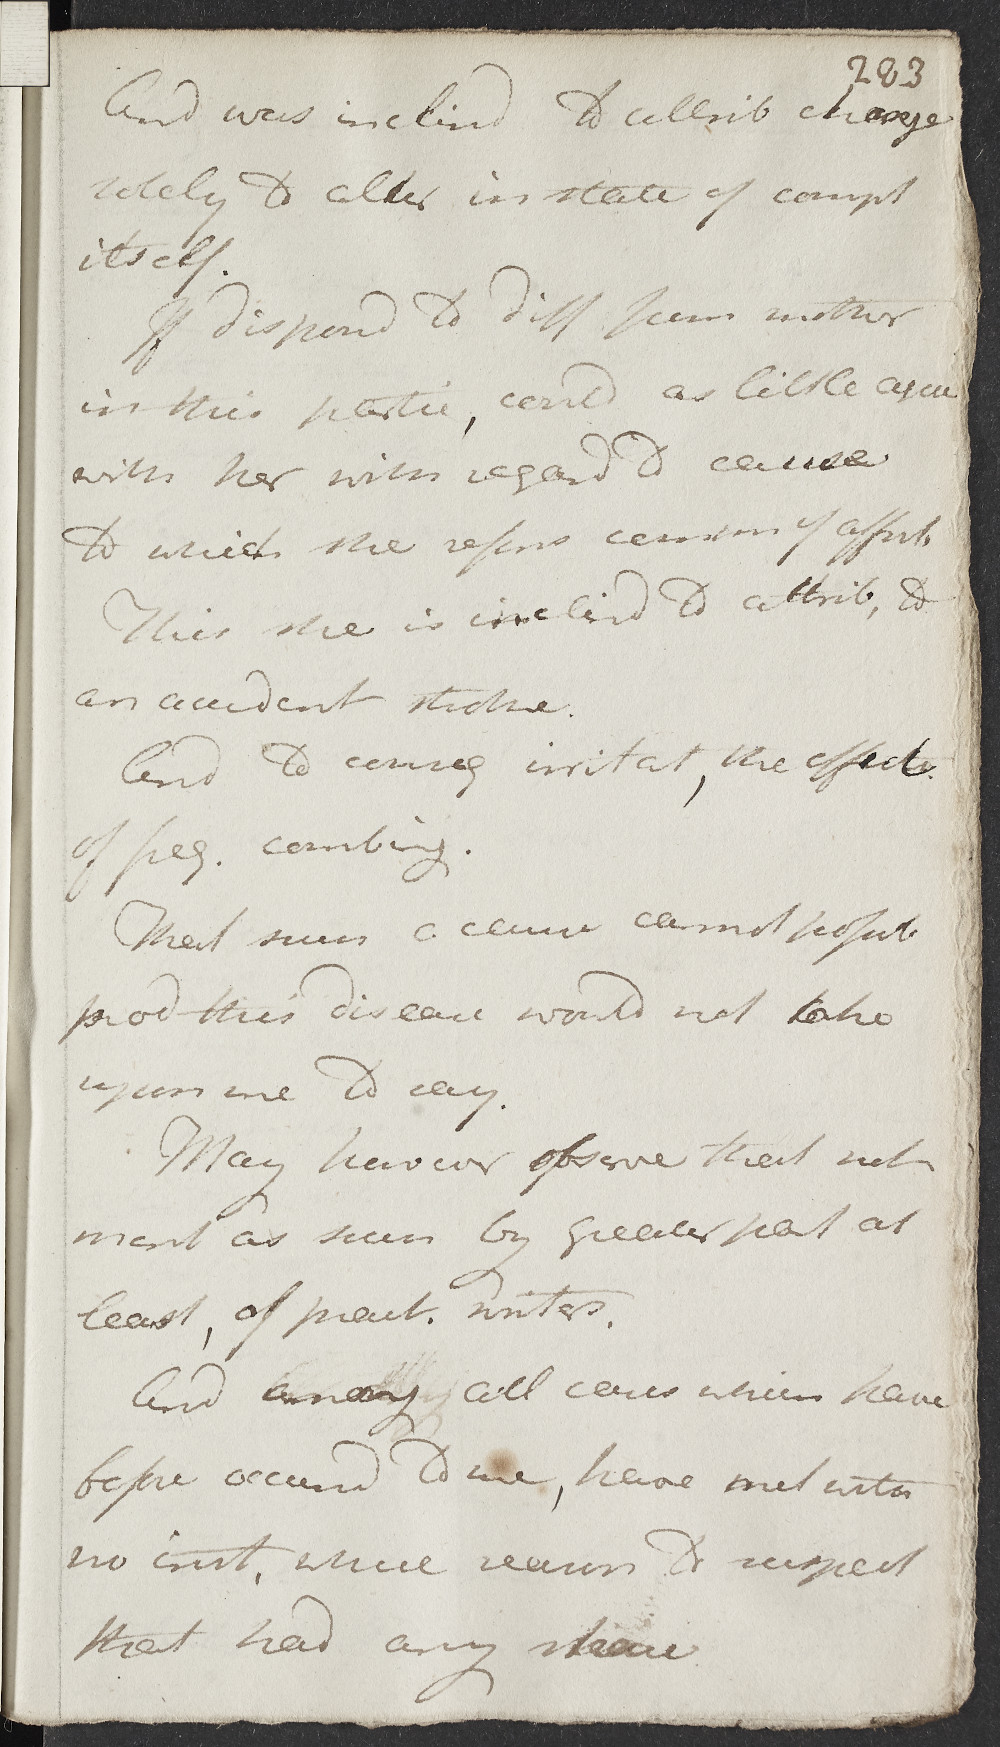 283
And was inclind to attrib change
solely to alter in state of compl
itself.
If dispond to diff from mother
in this partic, could as little agree
with her with regard to cause
to which she refers commm of affect.
This she is inclind to attrib, to
an accident stroke.
And to conseq irritat, the effects
of freq. combing.
That such a cause cannot possib
prod this disease would not take
upon me to say.
May however observe that not
ment as such by greater part at
least, of pract. writers.
And among all cases which have
before occurrd to me, have met with
no inst, where reason to suspect
that had any share